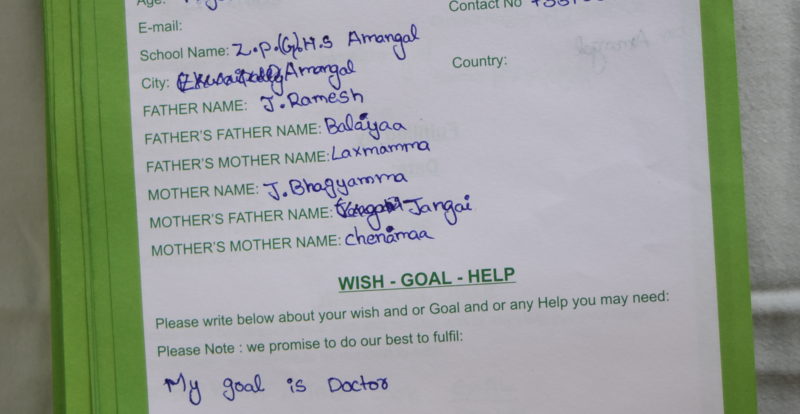 Age:
Contact No
E-mail:
School Name: Z.P.(G).H.S Amangal
City: Amangal
Country:
FATHER NAME: J.Ramesh
FATHER'S FATHER NAME: Balaiyaa
FATHER'S MOTHER NAME: Laxmamma
MOTHER NAME: J.Bhagyamma
MOTHER'S FATHER NAME: Jangai
MOTHER'S MOTHER NAME: chenamaa
WISH - GOAL - HELP
Please write below about your wish and or Goal and or any Help you may need:
Please Note : we promise to do our best to fulfil:
My goal is Doctor